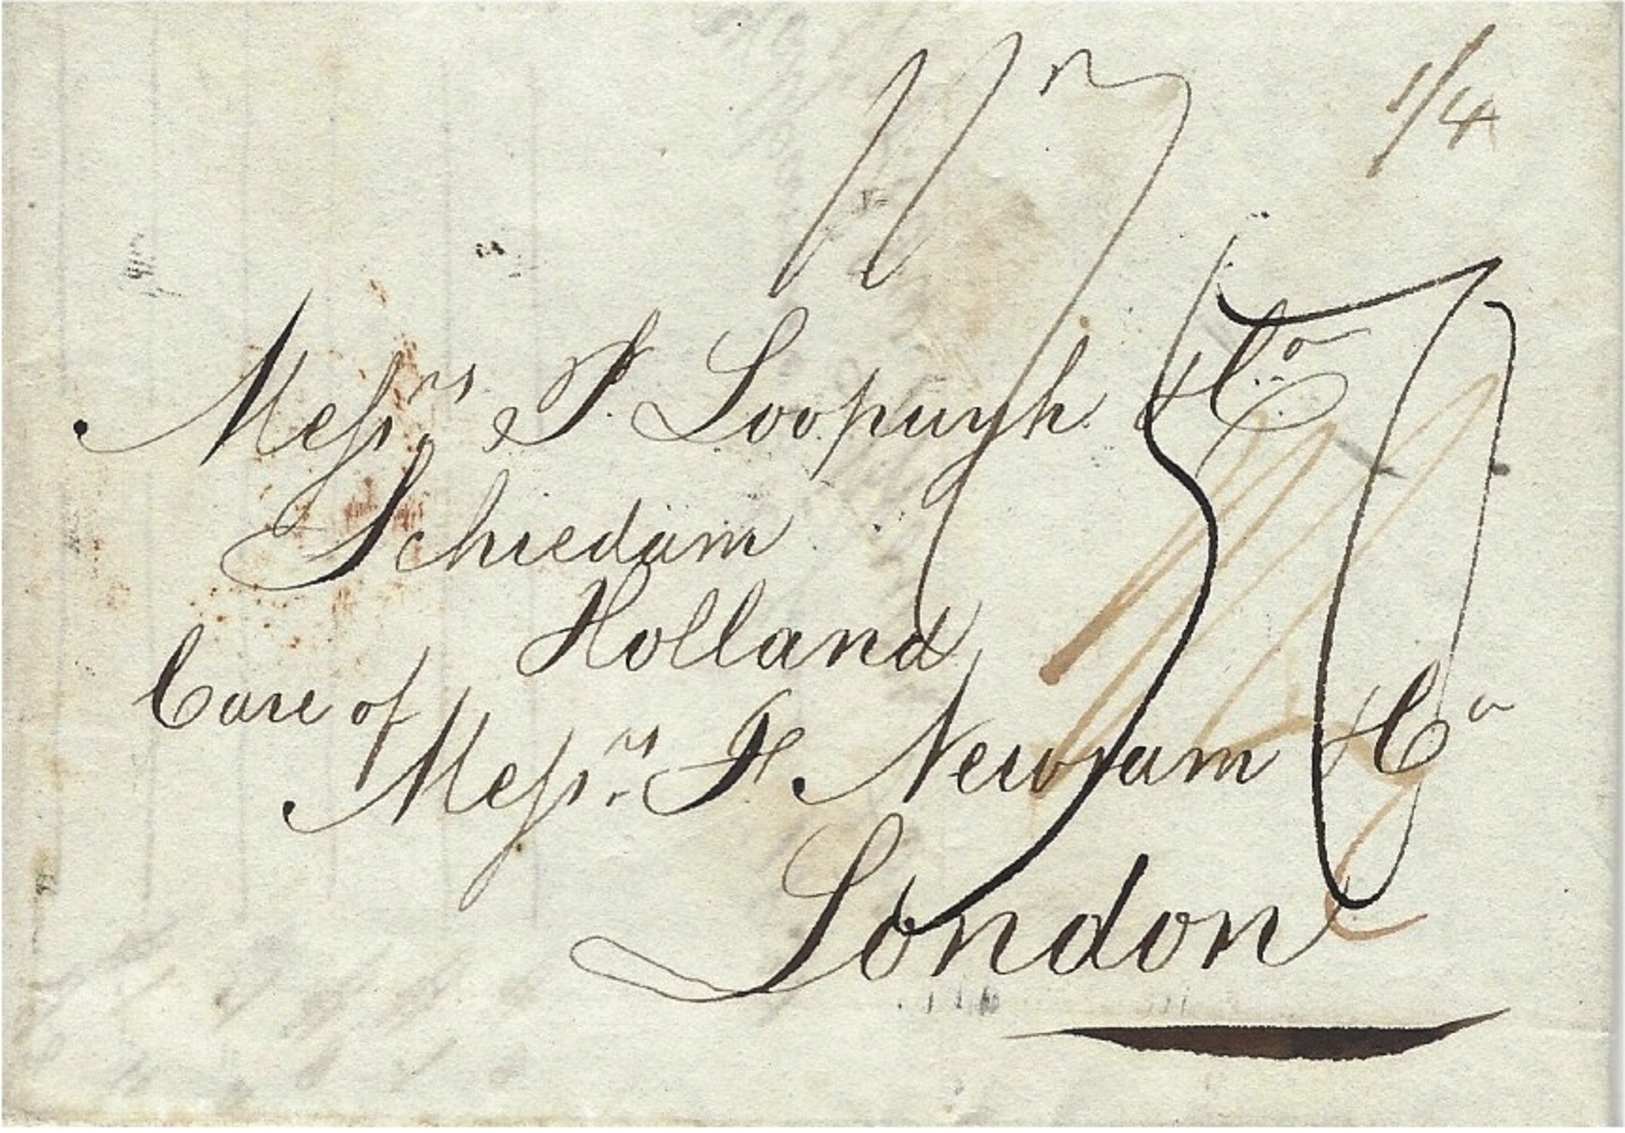 1/4
50
Messrs P. Loopuyh & Co
Schiedam
Holland
Care of
Messrs F. Newsam & Co
London